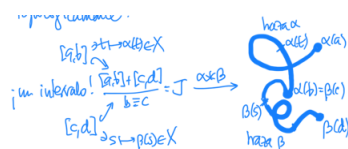 [a,b]∋t↦α(t)∈X
¡un intervalo! [a,b]+[c,d] / b≡c = J α*β
[c,d]∋s↦β(s)∈X
haza α
α(t)
α(a)
α(b)=β(c)
β(s)
haza β
β(d)